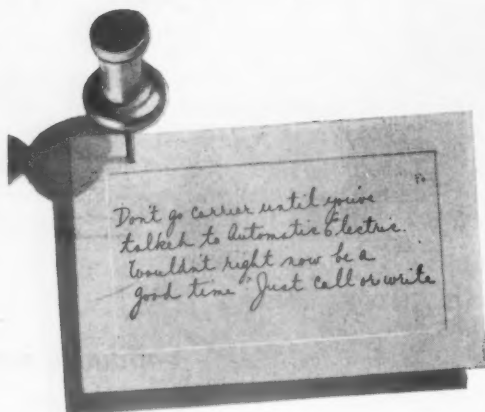 Don't go carrier until you've
talked to Automatic Electric.
Wouldn't right now be a
good time Just call or write